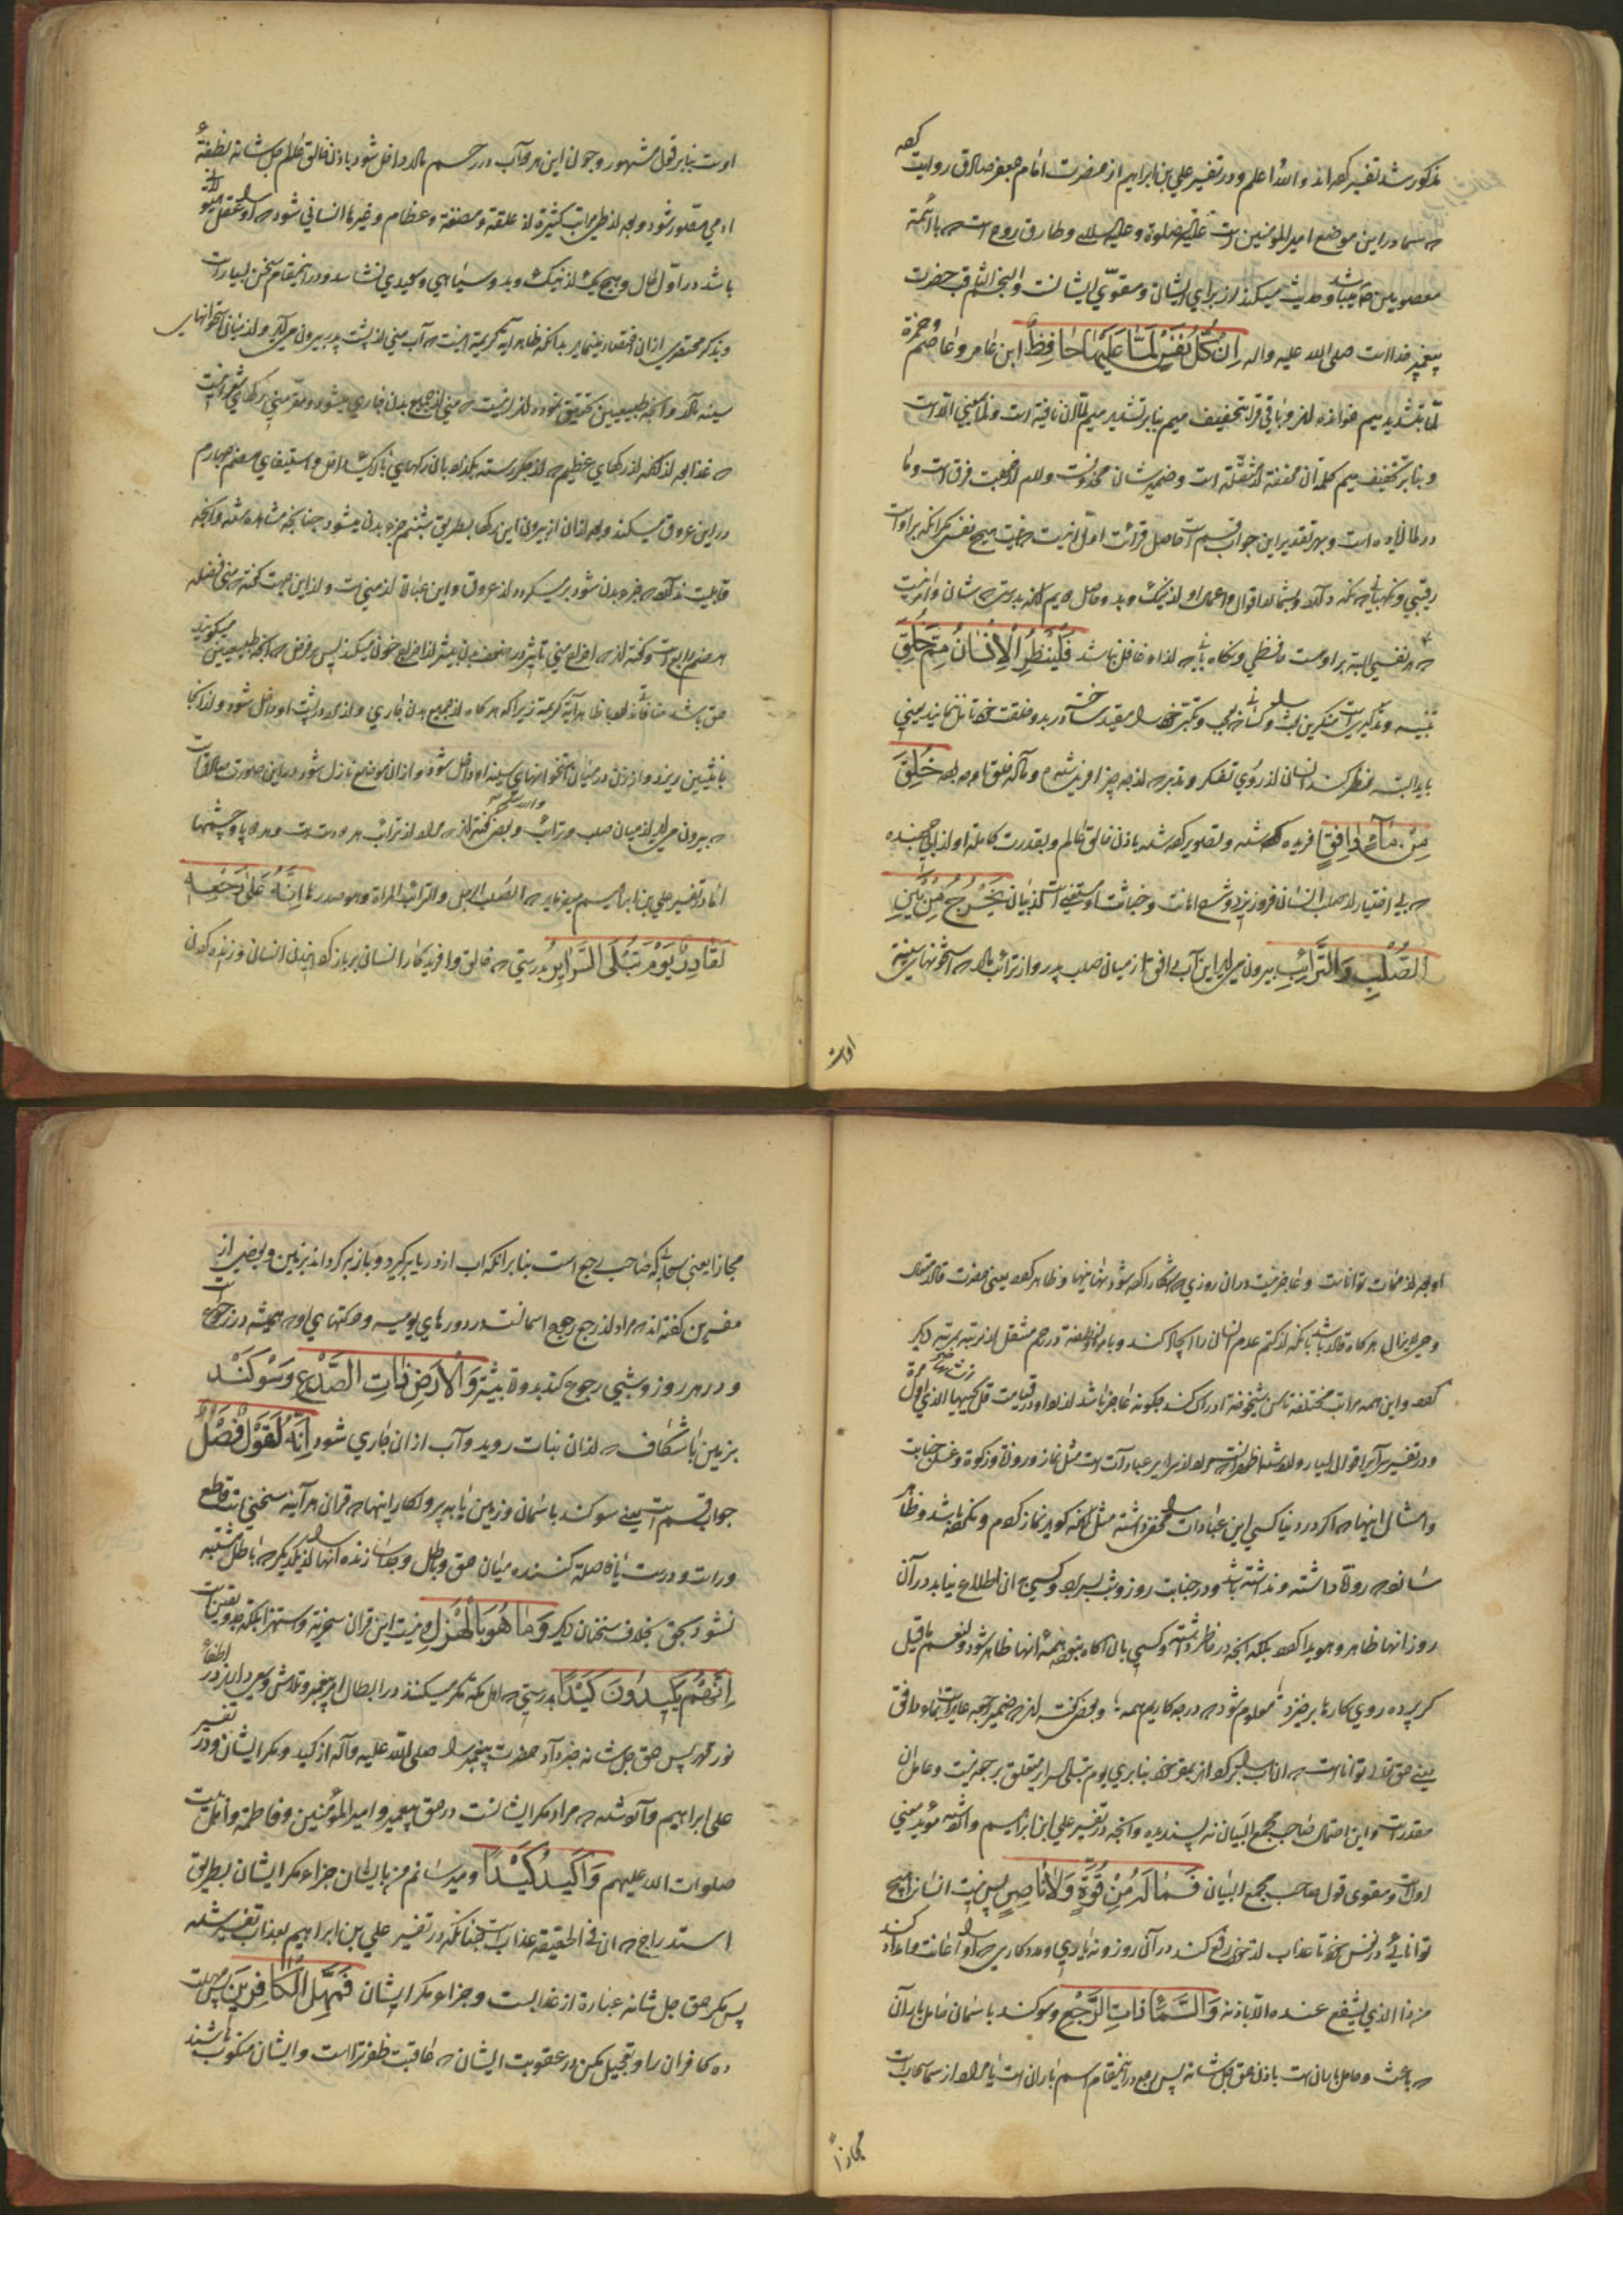 مذکور شد تفسیر کرده‌اند والله اعلم و در تفسیر علی بن ابراهیم از حضرت امام جعفر صادق روایت کرده
که سما در این موضع امیر المؤمنین است علیه الصلوة وعلیه السلام و طارق روح است که با ائمه
معصومین میباشد و حدیث میکند از برای ایشان و مقوی ایشانست والنجم الثاقب حضرت
پیغمبر خدا است صلی الله علیه واله اِنْ کُلُّ نَفْسٍ لَمّا عَلَیْها حافِظٌ ابن عامر و عاصم و حمزه
لمّا بتشدید میم خوانده‌اند و باقی قراء بتخفیف میم بنابر تشدید میم ان نافیة است ولمّا بمعنی الّا است
و بنابر تخفیف میم کلمه ان مخففه از مثقله است و ضمیر شان محذوفست و لام از جهت فرق است و ما
در لما زایده است و بهر تقدیر این جواب قسم است حاصل قرائت اول اینست که نیست هیچ نفسی مگر آنکه بر او است
رقیبی و نگهبانی که نگه دارد اقوال و اعمال او از نیک و بد و حاصل دویم آنکه بدرستی که شان و امر اینست
که هر نفسی البته بر اوست حافظی و نگاه بانی که از او غافل نباشد فَلْیَنْظُرِ الْاِنْسانُ مِمَّ خُلِقَ
باید البته نظر کند انسان از روی تفکر و تدبر که از چه چیز آفریده شده و ماده خلق او چه بوده خُلِقَ
مِنْ ماءٍ دافِقٍ افریده شده و تصویر کرده شده باذن خالق عالم و بقدرت کامله او از آبی جهنده
که بی اختیار از صلب انسانی فرو ریزد یَخْرُجُ مِنْ بَیْنِ
الصُّلْبِ وَالتَّرائِبِ بیرون می‌آید این آب دافق از میان صلب پدر و از ترائب مادر که استخوانهای سینه
اوست
اوست بنابر قول مشهور و چون این هر دو آب در رحم مادر داخل شود باذن خالق عالم جل شانه نطفهٔ
ادمی متصور شود و بعد از طی مراتب کثیرة از علقة و مضغة و عظام و غیرها انسانی شود که او را عقل
باشد در اول حال و هیچ یک از نیک و بد و سیاهی و سفیدی نشناسد و در اینمقام سخن بسیار است
و بذکر مختصری از ان اختصار مینماید بدانکه ظاهر آیه کریمه اینست که آب منی از پشت پدر بیرون می‌آید و از میان استخوانهای
سینه مادر و آنچه طبیعیین تحقیق نموده‌اند اینست که منی از جمیع بدن جاری میشود
که غذا بعد از آنکه از رکهای عظیم که از جگر رسته بگذرد
در این عروق میکند و بعد از ان از بیرون این رکها بطریق شبنم جزء بدن میشود چنانچه مشاهده شده و آنچه
قابلیت نداشته که جزء بدن شود
حق باشد منافات ندارد با ظاهر آیه کریمه زیرا که هر گاه از جمیع بدن جاری و از مرد در پشت او داخل شود و از انجا
بانثیین ریزد و از زن در میان استخوانهای سینه او داخل شود و از ان موضع نازل شود در این صورت صادق است
که بیرون می‌آید از میان صلب و ترائب و بعضی گفته‌اند که مراد از ترائب هر دو دست و هر دو پا و چشمها
است والله یعلم
اما در تفسیر علی بن ابراهیم میفرماید که الصلب الرجل والترائب المراة وهو صدرها اِنَّهُ عَلی رَجْعِهِ
لَقادِرٌ یَوْمَ تُبْلَی السَّرائِرُ بدرستی که خالق و افریدکار انسان بر باز گردانیدن انسان و زنده کردن
او بعد از ممات توانا است و عاجز نیست در ان روزی که آشکارا کرده شود نهانیها و ظاهر گردد
و هر گاه قادر باشد بآنکه از کتم عدم انسان را ایجاد کند و باز از نطفه در رحم منتقل از مرتبه بمرتبه دیگر
کرده و این همه مراتب مختلفه تا سن شیخوخة ادراک کند چگونه عاجز باشد از اعاده او در قیامت قل یحییها الذی انشاها اول مرة
و در تفسیر سرائر اقوال بسیار وارد شده اظهر آنست که مراد از سرایر عبادات است مثل نماز و روزه و زکوة و غسل جنابت
و امثال اینها که اگر در دنیا کسی این عبادات را مخفی داشته مثل آنکه گوید نماز کردم و نکرده باشد و ظاهر
سازد که روزه داشته و نداشته باشد و در جنابت روز و شب بسر برد و کسی بر ان اطلاع نیابد در آن
روز آنها ظاهر و هویدا گردد بلکه آنچه در خاطر داشته و کسی بآن آگاه نبوده همهٔ آنها ظاهر شود و لنعم ما قیل
گر پرده ز روی کارها برخیزد معلوم شود که در چه کاریم همه و بعضی گفته‌اند که ضمیر رجعه عاید است بماء دافق
یعنی حق تعالی توانا است که آن آب را برگرداند بمقر خود بنابرین یوم تبلی السرایر متعلق برجعه نیست و عامل ان
مقدر است و این احتمال صاحب مجمع البیان نه پسندیده و آنچه در تفسیر علی ابن ابراهیم واقع شده مؤید معنی
اول است و مقوی قول صاحب مجمع البیان فَما لَهُ مِنْ قُوَّةٍ وَلا ناصِرٍ پس نیست انسان را هیچ
توانائی در نفس خود تا عذاب از خود رفع کند در آن روز و نه یاری و مددکاری که او را اعانت و امداد کند
من ذا الذی یشفع عنده الا باذنه وَالسَّماءِ ذاتِ الرَّجْعِ و سوگند باسمان
که باعث و حامل باران است باذن حق جل شانه پس رجع در اینمقام اسم باران است یا مراد از سما سحاب است
مجازاً
مجازا یعنی سحابی که صاحب رجع است بنابر انکه اب از دریا بر گیرد و باز بر گرداند بزمین و بعضی از
مفسرین گفته‌اند که مراد از رجع رجوع اسمانست در دورهای یومیه و حرکتهای او که همیشه در رجوع است
و در هر روز و شبی رجوع کند بدورهٔ پیشتر وَالْاَرْضِ ذاتِ الصَّدْعِ و سوگند
بزمین با شکاف که از ان نبات روید و آب از ان جاری شود اِنَّهُ لَقَوْلٌ فَصْلٌ
جواب قسم است یعنی سوگند باسمان و زمین یا به پروردگار اینها که قران هر آینه سخنی است قاطع
و راست و درست یا فاصله کننده میان حق و باطل و جدا سازنده آنها را از یکدیگر که باطل مشتبه
نشود بحق بخلاف سخنان دیگر وَما هُوَ بِالْهَزْلِ و نیست این قران سخریه و استهزا بلکه جد و یقین است
اِنَّهُمْ یَکیدُونَ کَیْداً بدرستی که اهل مکه مکر میکنند در ابطال امر پیغمبر و تلاش و سعی دارند در اطفاء
نور محمد پس حق جل شانه خبر داد حضرت پیغمبر را صلی الله علیه وآله از کید و مکر ایشان و در تفسیر
علی ابراهیم وارد شده که مراد مکر ایشانست در حق پیغمبر و امیر المؤمنین و فاطمه و اهل بیت
صلوات الله علیهم وَاَکیدُ کَیْداً و میرسانم من بایشان جزاء مکر ایشان بطریق
استدراج که ان فی الحقیقه عذابست چنانکه در تفسیر علی بن ابراهیم بعذاب تفسیر شده
پس مکر حق جل شانه عبارة از عذابست و جزاء مکر ایشان فَمَهِّلِ الْکافِرینَ پس مهلت
ده کافران را و تعجیل مکن در عقوبت ایشان که عاقبت ظفر ترا است و ایشان منکوب باشند